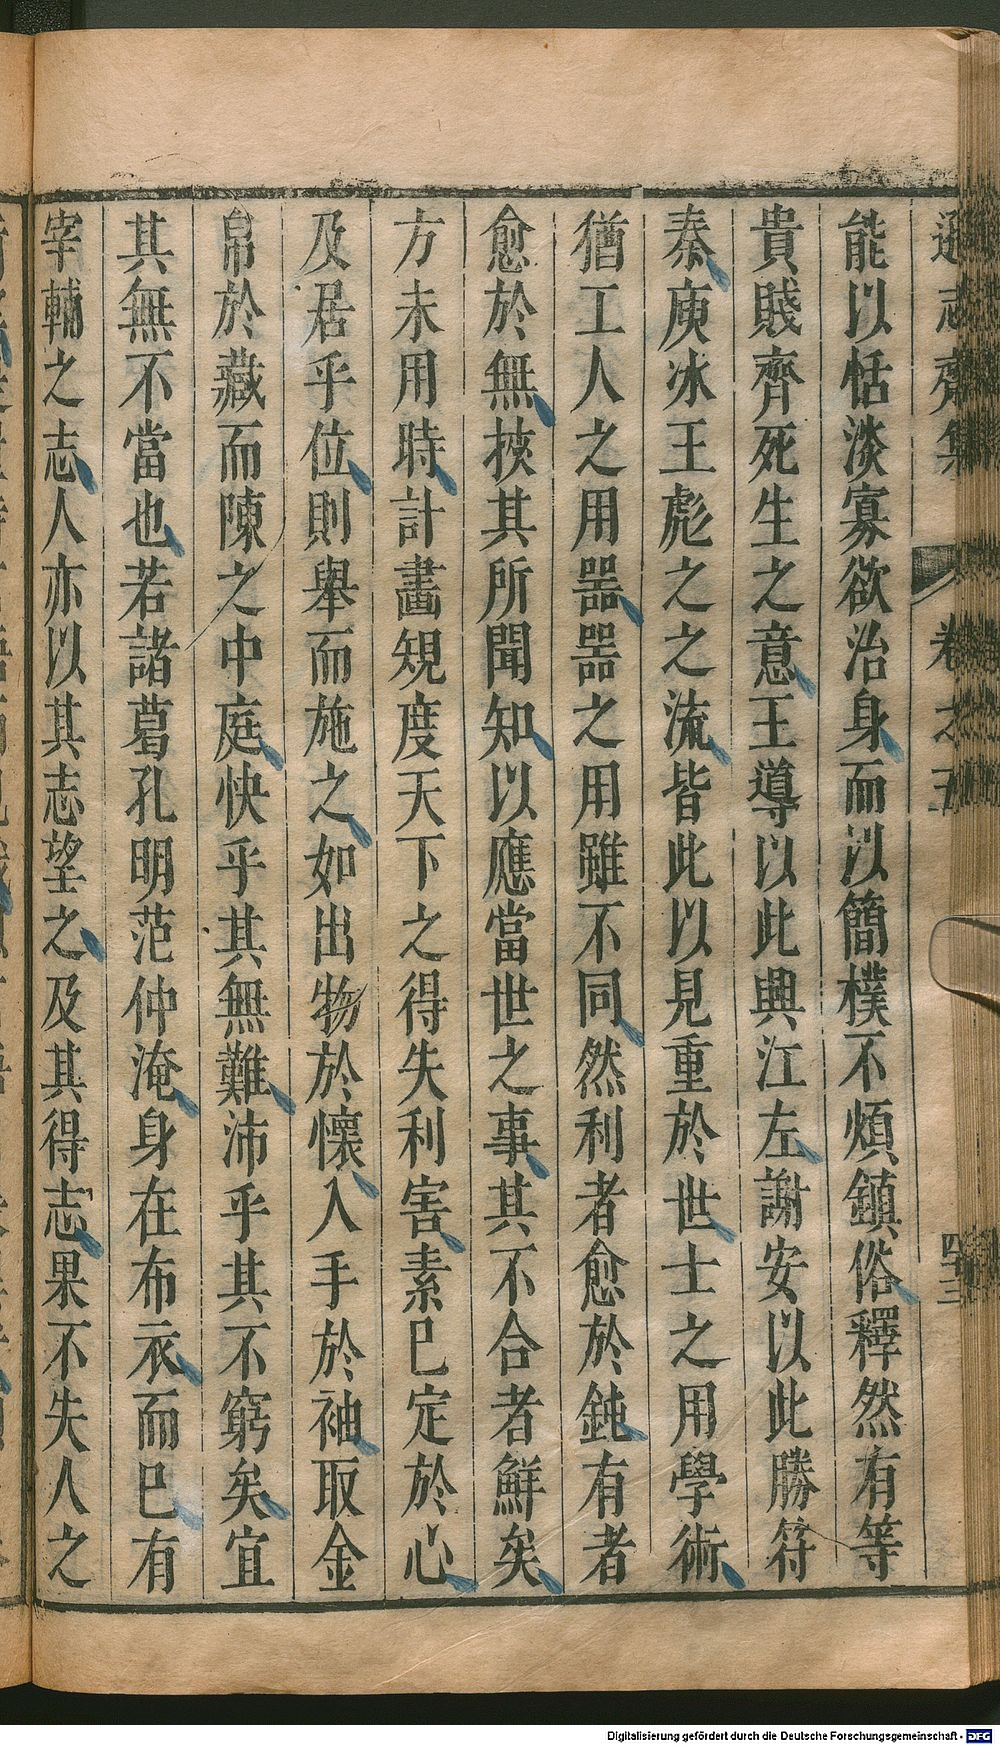 遜志齋集 卷之五 四三
能以恬淡寡欲治身而以簡樸不煩鎮俗釋然有等
貴賤齊死生之意王導以此興江左謝安以此勝符
秦庾冰王彪之之流皆此以見重於世士之用學術
猶工人之用器器之用雖不同然利者愈於鈍有者
愈於無核其所聞知以應當世之事其不合者鮮矣
方未用時計畫規度天下之得失利害素已定於心
及居乎位則舉而施之如出物於懷入手於袖取金
帛於藏而陳之中庭快乎其無難沛乎其不窮矣宜
其無不當也若諸葛孔明范仲淹身在布衣而已有
宰輔之志人亦以其志望之及其得志果不失人之
Digitalisierung gefördert durch die Deutsche Forschungsgemeinschaft - DFG